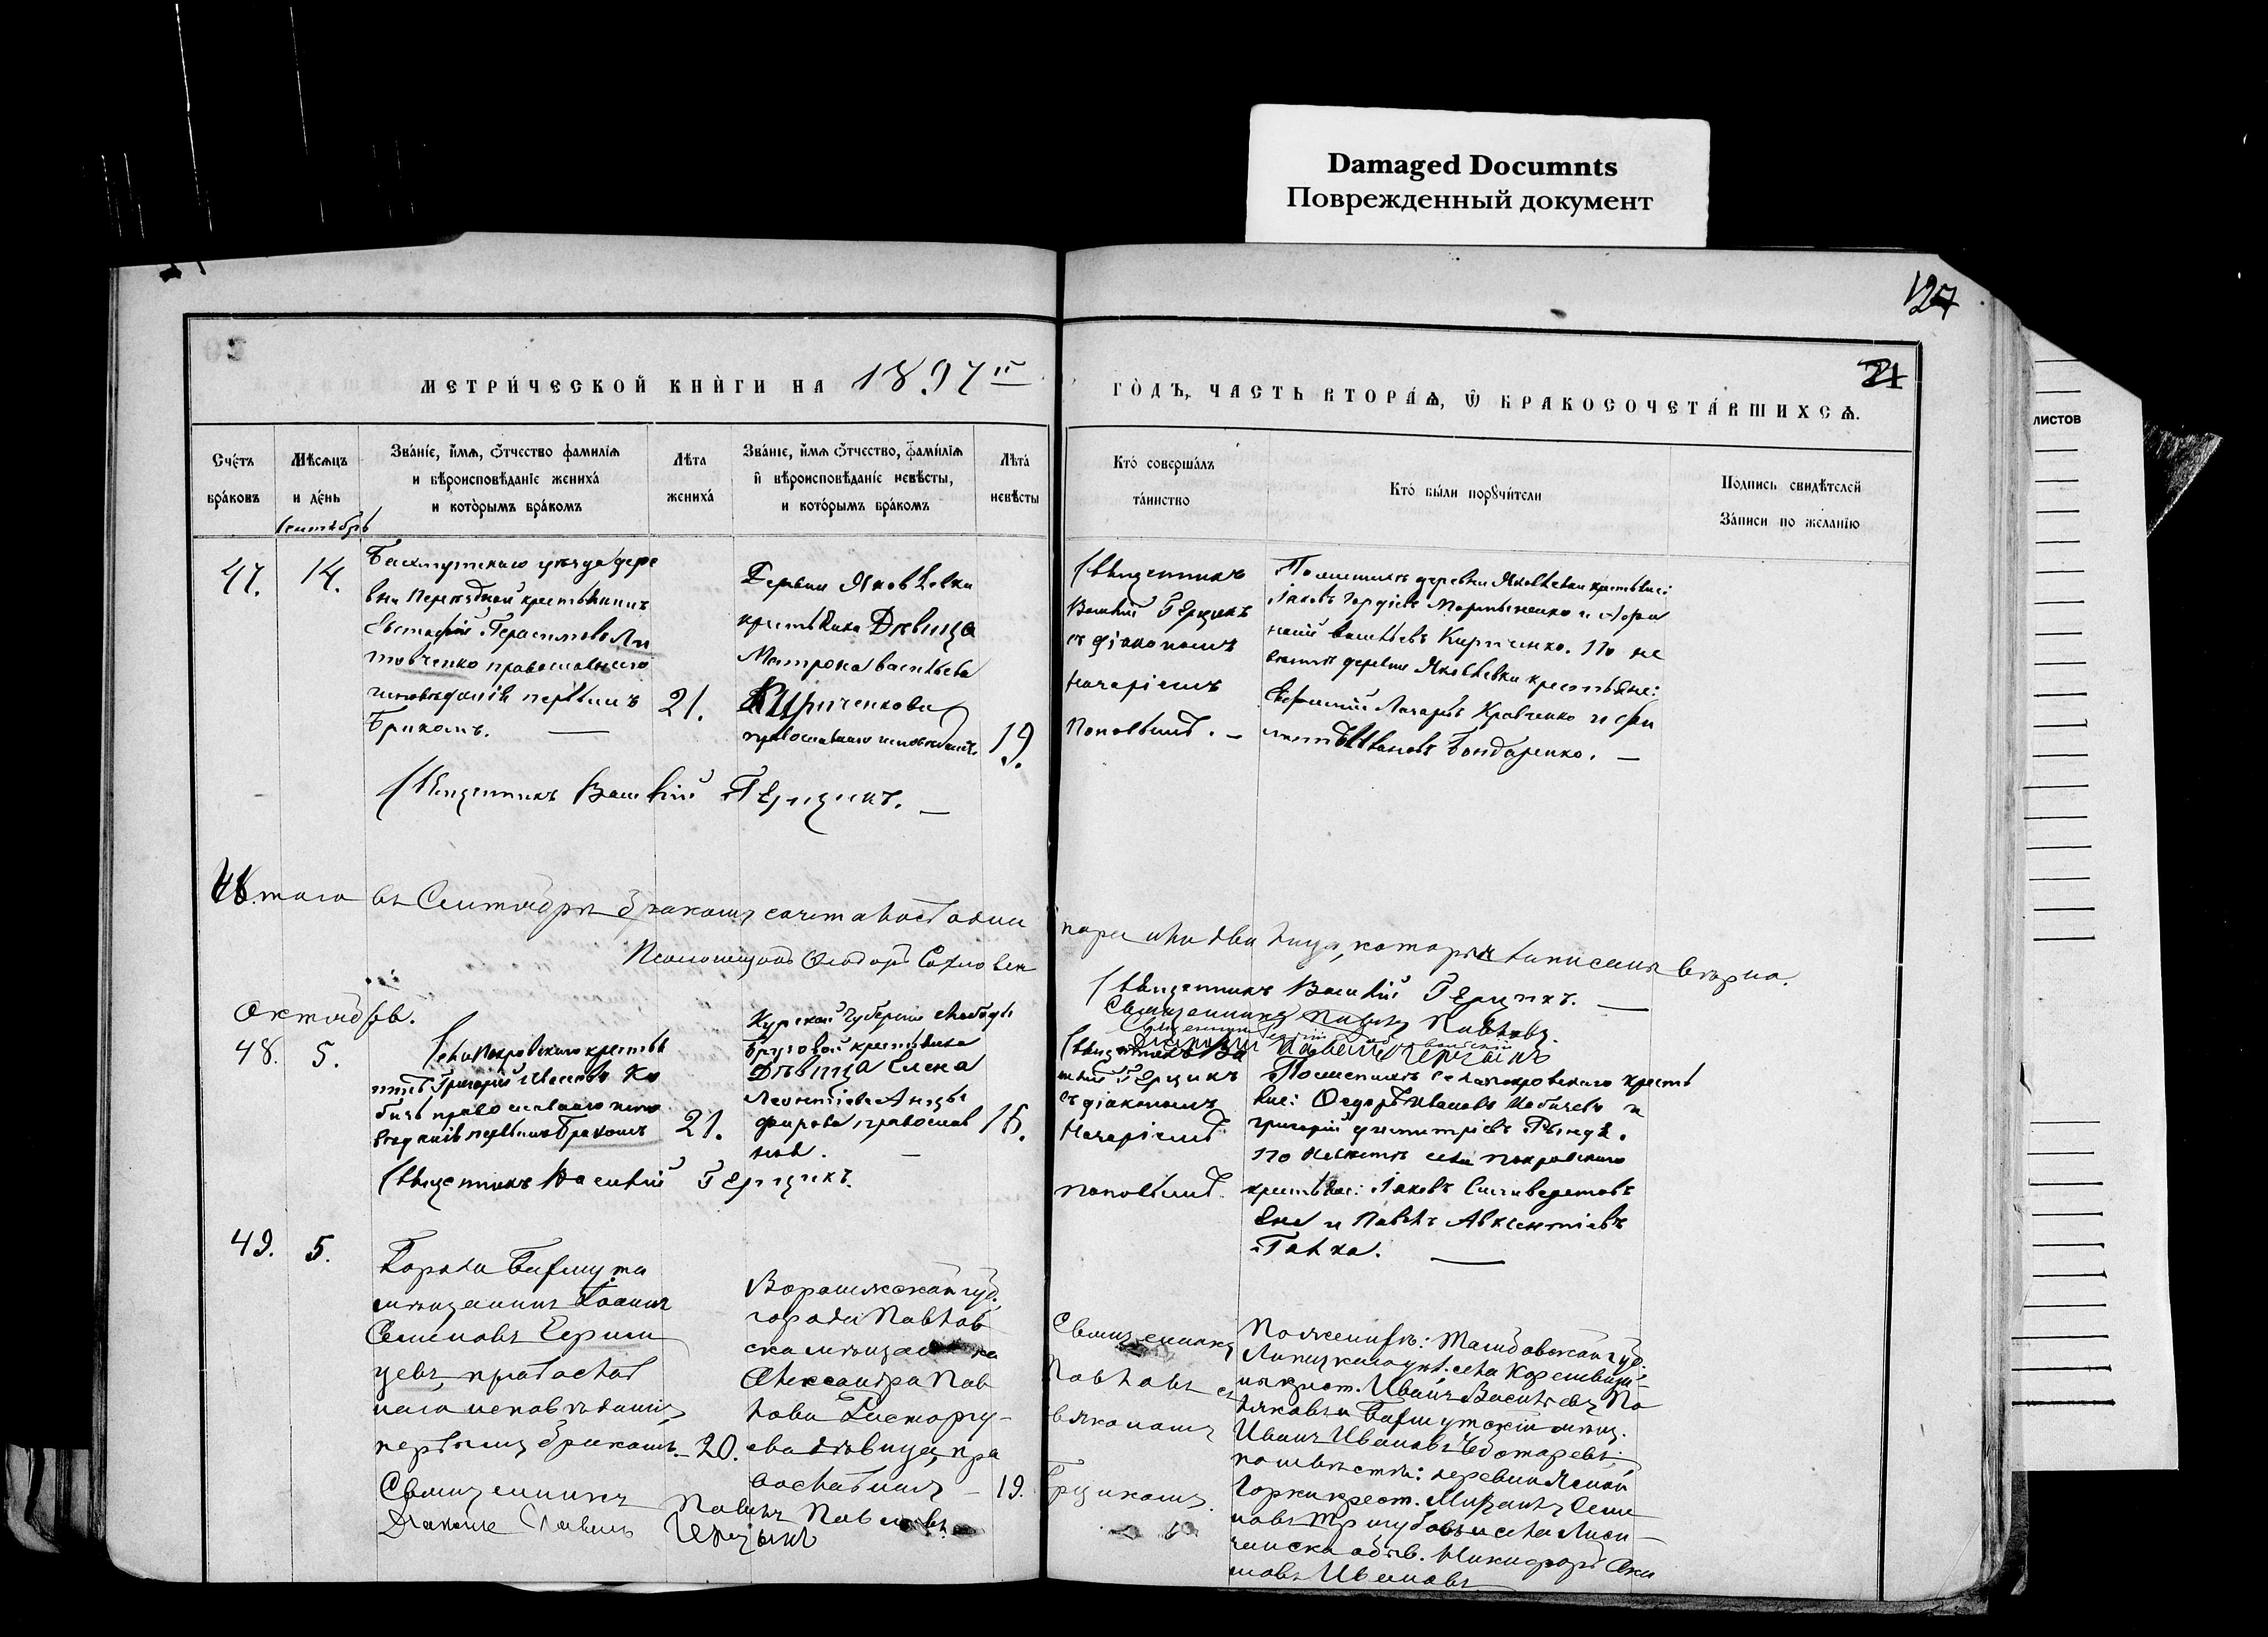 Damaged Documnts
Поврежденный документ
листов
127
21
МЕТРИЧЕСКОЙ КНИГИ НА 1897й
ГОДЪ, ЧАСТЬ ВТОРАѦ, Ѿ БРАКОСОЧЕТАВШИХСѦ.
Счетъ браковъ
Мѣсяцъ и день
Званіе, имя, отчество фамилія и вѣроисповѣданіе жениха и которымъ бракомъ
Лѣта жениха
Званіе, имя отчество, фамилія и вѣроисповѣданіе невѣсты, и которымъ бракомъ
Лѣта невѣсты
Кто совершалъ таинство
Кто были поручители
Подпись свидѣтелей записи по желанію
Сентябрь
47.
14.
Бахмутскаго уѣзда дере
вни Переѣздной крестьянинъ
Евстафій Герасимовъ Ли
товченко православнаго
исповѣданія первымъ
бракомъ. —
21.
Деревни Яковлевки
крестьянка Дѣвица
Матрона Васильева
Кириченкова
православнаго исповѣданія.
19.
Священникъ
Василій Герцикъ
съ діакономъ
Назаріемъ
Поповымъ. —
По женихѣ деревни Яковлевки крестьяне:
Іаковъ Гордіевъ Мартыненко и Афа
насій Васильевъ Кириченко. По не
вѣстѣ деревни Яковлевки крестьяне:
Евфимій Лазаревъ Кравченко и
Ивановъ Бондаренко. —
Священникъ Василій Герцикъ. —
Итого въ Сентябрѣ бракомъ сочеталось одна
пара или два лица, которыя записаны вѣрно.
Псаломщикъ Ѳеодоръ
Священникъ Василій Герцикъ. —
Священникъ Павелъ Павловъ.
Октябрь.
48.
5.
Села Покровскаго крестья
нинъ Григорій Ивановъ Ко
бичъ православнаго испо
вѣданія первымъ бракомъ
21.
Курской Губерніи слободы
крестьянка
Дѣвица Елена
Леонтіева
православ
ная. —
Священникъ Ва
силій Герцикъ
съ діакономъ
Назаріемъ
Поповымъ.
По женихѣ села Покровскаго кресть
яне: Ѳедоръ Ивановъ и
Григорій Димитріевъ Рында.
По невѣстѣ села Покровскаго
крестьяне: Іаковъ
и Павелъ Авксентіевъ
Галка. —
Священникъ Василій Герцикъ.
49.
5.
Города Бахмута
мѣщанинъ Іоаннъ
Семеновъ
православ
наго исповѣданія,
первымъ бракомъ.
20.
Воронежской губ.
города Павлов
ска мѣщанка
Александра Пав
лова Расторгу-
ева дѣвица, пра
вославная
19.
Священникъ
Павловъ съ
діакономъ
По женихѣ: Тамбовской губ.
Липецкаго уѣз. села
крест. Иванъ Васильевъ По
ляковъ и Бахмутскій мѣщ.
Иванъ Ивановъ Чеботаревъ;
по невѣстѣ: деревни Ясной
Горки крест. Михаилъ Семе
новъ и села Лиси
чанска обыв. Никифоръ
Ивановъ
Священникъ Павелъ Павловъ
Діаконъ Павелъ